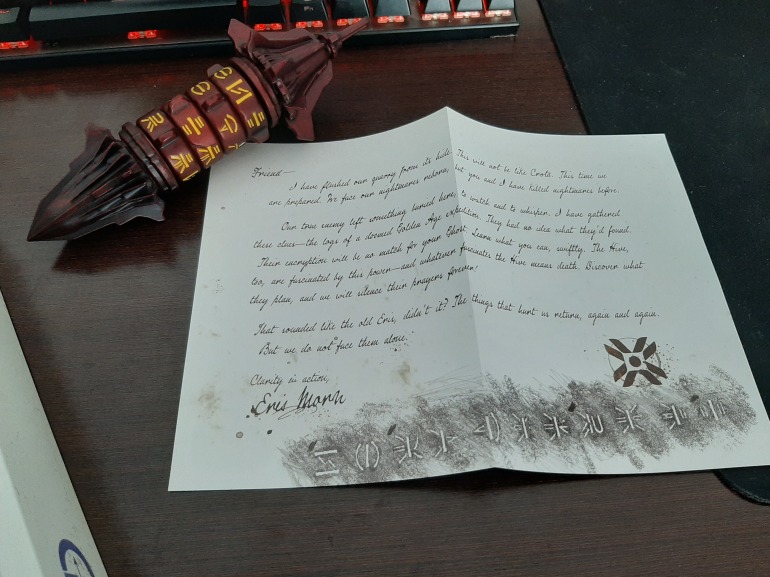 Friend—
I have flushed our quarry from its hide. This will not be like Crota. This time we
are prepared. We face our nightmares reborn, but you and I have killed nightmares before.
Our true enemy left something buried here, to watch and to whisper. I have gathered
these clues—the logs of a doomed Golden Age expedition. They had no idea what they'd found.
Their encryption will be no match for your Ghost. Learn what you can, swiftly. The Hive,
too, are fascinated by this power—and whatever fascinates the Hive means death. Discover what
they plan, and we will silence their prayers forever!
That sounded like the old Eris, didn't it? The things that hunt us return, again and again.
But we do not face them alone.
Clarity in action,
Eris Morn